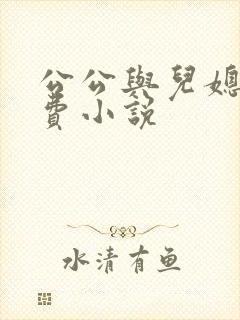 公公與兒媳
費小說
水清有鱼